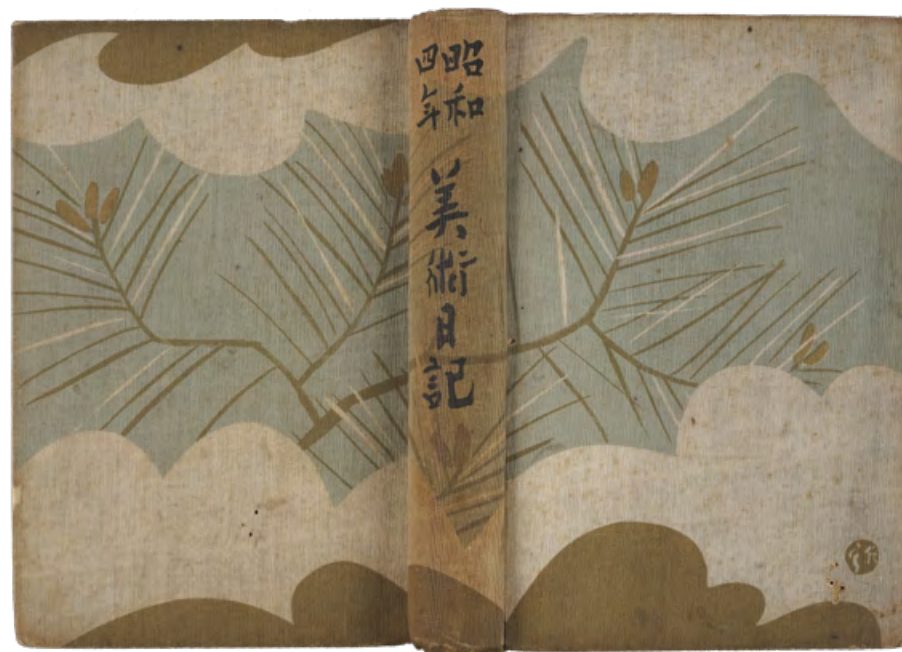 昭和
四年
美術日記